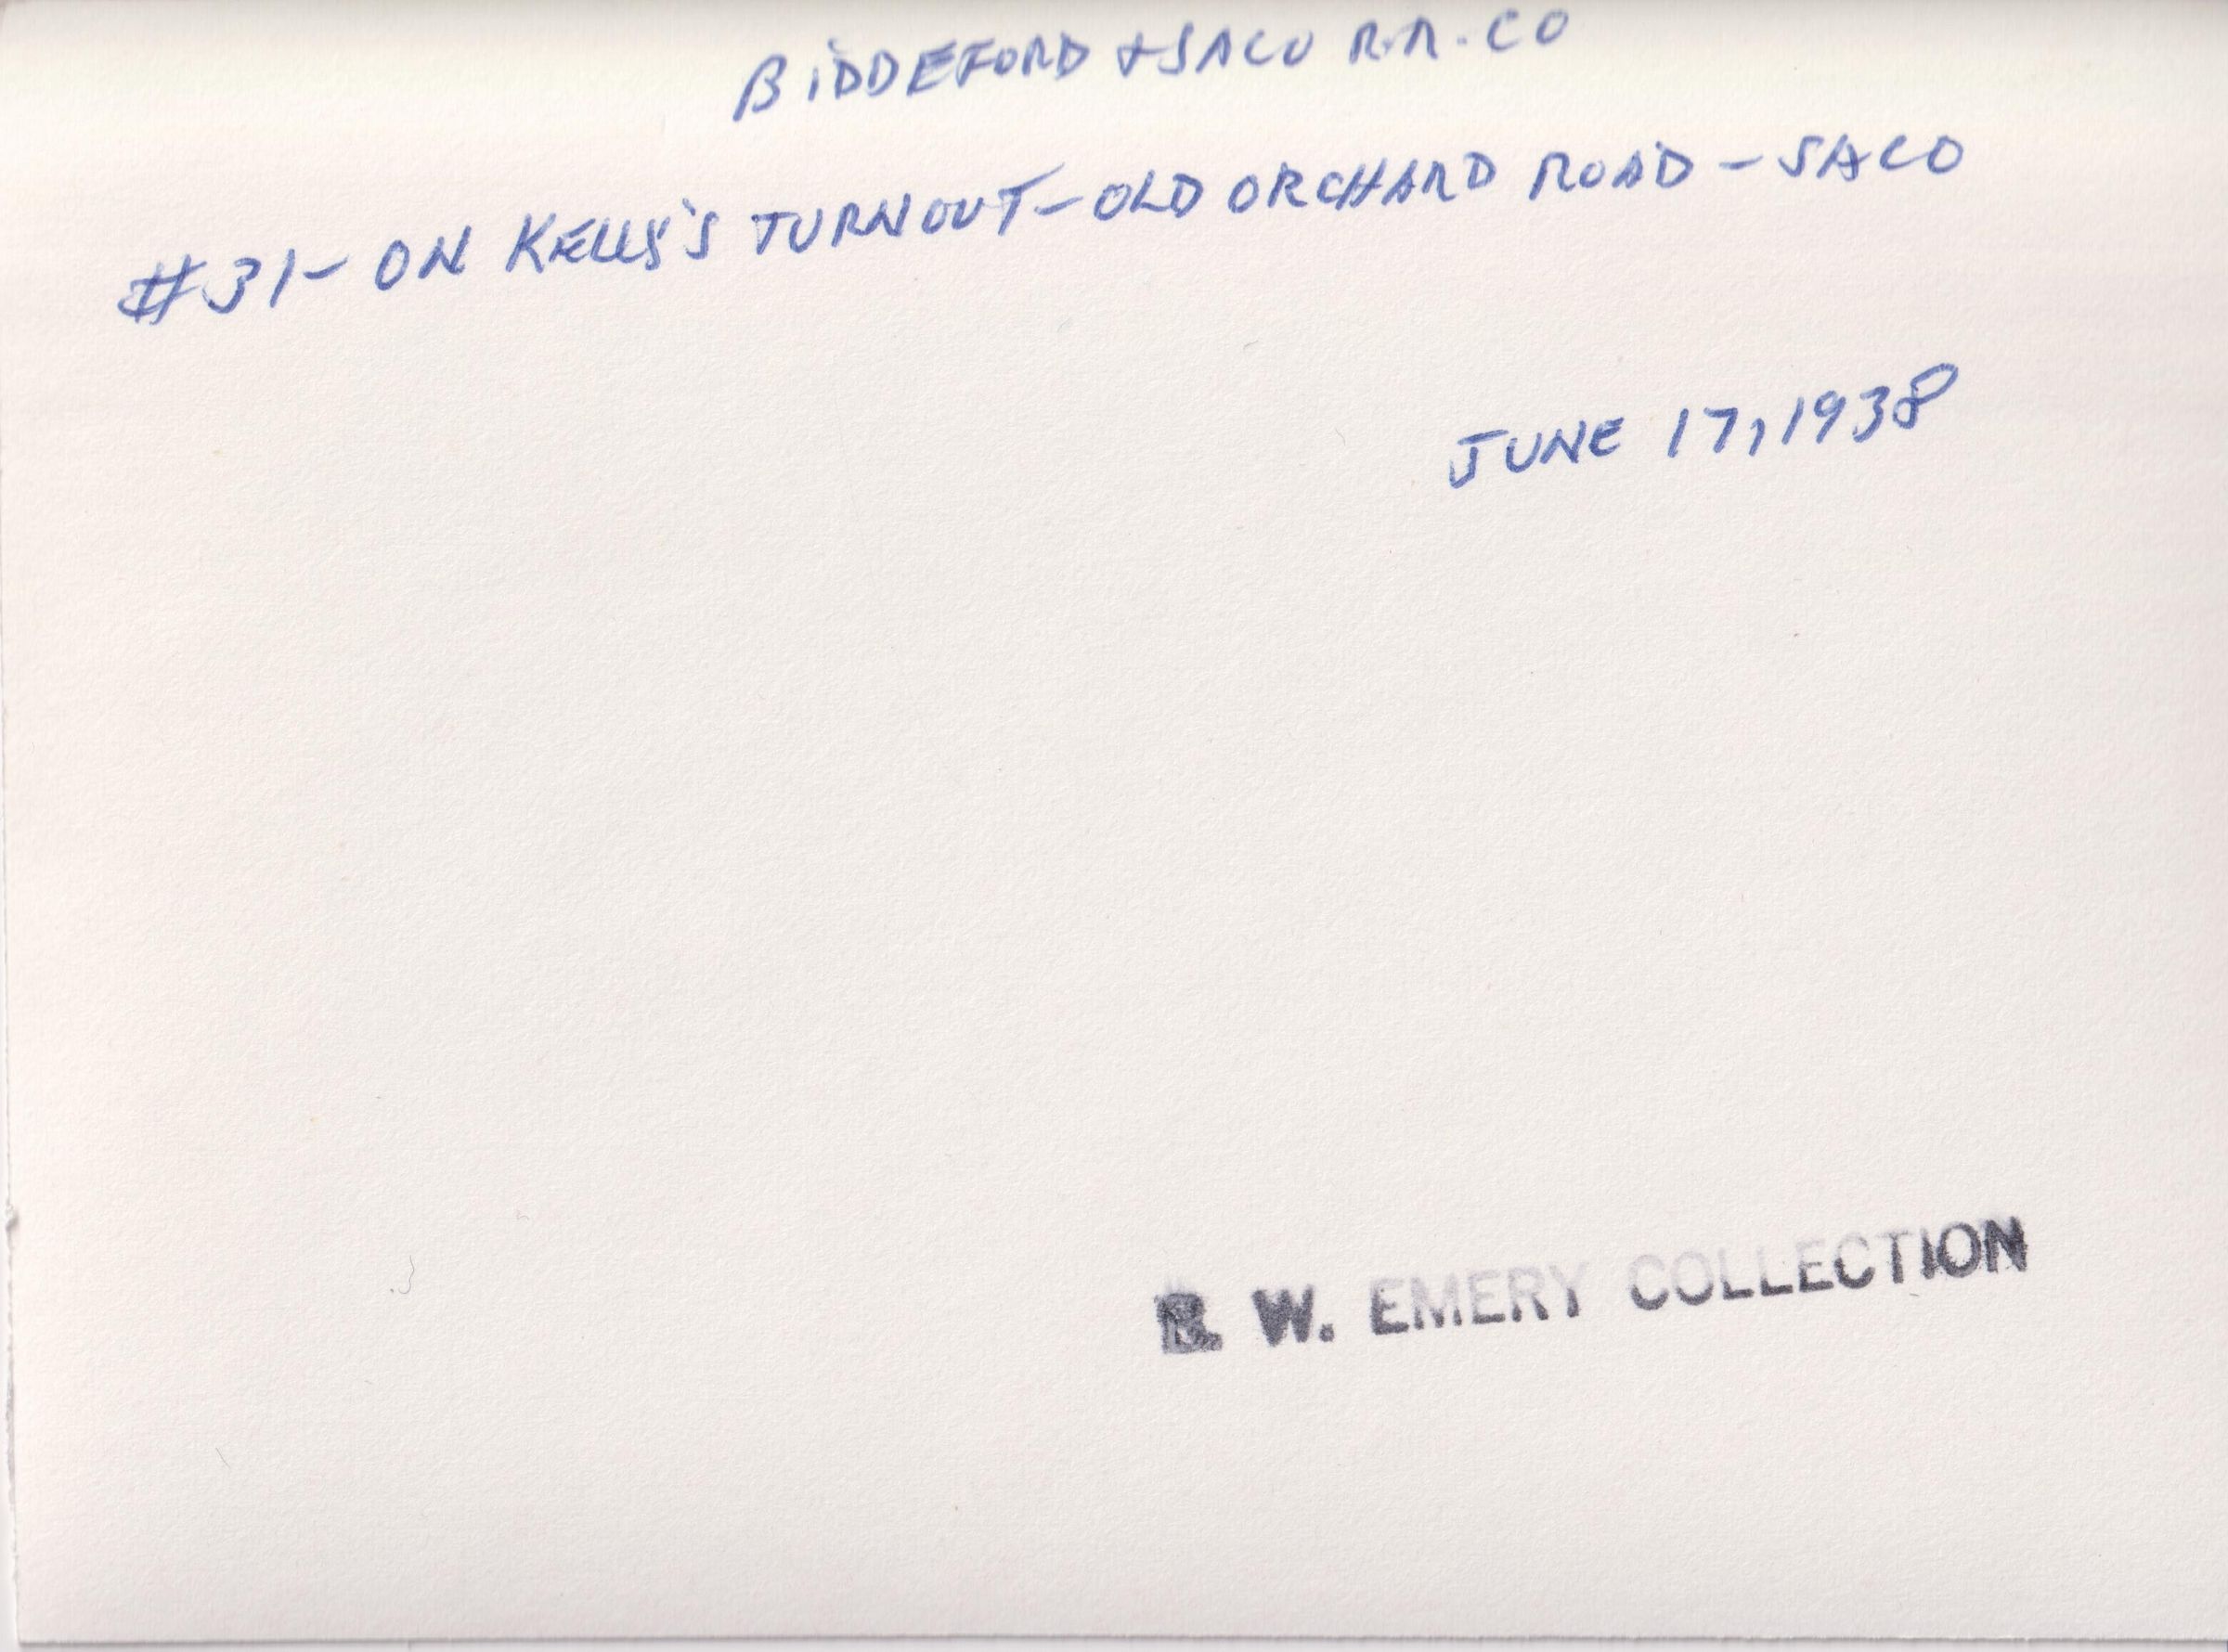 BIDDEFORD + SACO R.R. CO
#31- ON TURNOUT - OLD ORCHARD ROAD - SACO
JUNE 17, 1938
W. EMERY COLLECTION